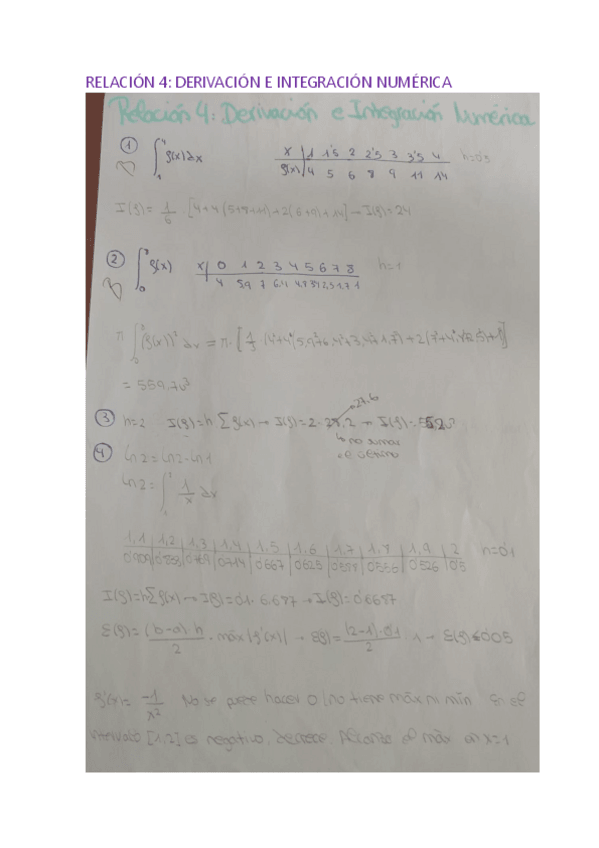 RELACIÓN 4: DERIVACIÓN E INTEGRACIÓN NUMÉRICA
Relación 4: Derivación e Integración Numérica
① ∫₁⁴ f(x)dx
x | 1 1'5 2 2'5 3 3'5 4 h=0'5
f(x) | 4 5 6 8 9 11 14
I(f) = 1/6 [4+4(5+8+11)+2(6+9)+14] → I(f)=24
② ∫₀⁸ f(x) x | 0 1 2 3 4 5 6 7 8 h=1
4 5,9 7 6,4 1,7 1
π ∫₀⁸ (f(x))² dx = π·[1/3·(4²+4(5,9²+6,4²+3,4²+1,7²)+2(7²+4
= 559,7u³
③ h=2 I(f)=h·Σf(x) → I(f)=2· → I(f)=
27.6
↳ no sumar
el último
④ ln2=ln2-ln1
ln2=∫₁² 1/x dx
1,1 | 1,2 | 1,3 | 1,4 | 1,5 | 1,6 | 1,7 | 1,8 | 1,9 | 2 h=0'1
0'909 | 0'833 | 0'769 | 0'714 | 0'667 | 0'625 | 0'588 | 0'556 | 0'526 | 0'5
I(f)=hΣf(x) → I(f)=0'1· 6.687 → I(f)=0'6687
E(f)= (b-a)·h/2 · máx|f'(x)| → E(f)= (2-1)·0'1/2 · 1 → E(f)≤0'05
f'(x)= -1/x² No se puede hacer 0 (no tiene máx ni mín. En el
intervalo [1,2] es negativo, decrece, alcanza el máx en x=1